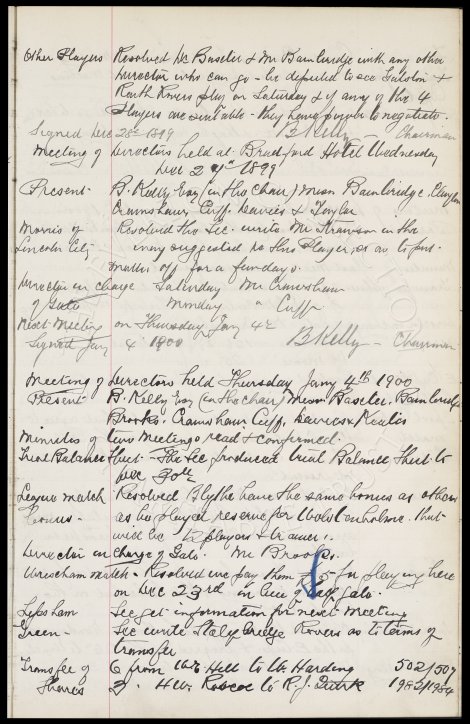 Other Players Resolved Dr Baxter & Mr Bainbridge with any other
Director who can go - be deputed to see Galston &
Raith Rovers play on Saturday & if any of the 4
Players are suitable - they have power to negotiate.
Signed Dec 28th 1899 B Kelly - Chairman
Meeting of Directors held at Bradford Hotel Wednesday
Dec 27th 1899
Present - B. Kelly Esq (in the Chair) Messrs Bainbridge, Clayton
Crawshaw, Cuff, Davies & Taylor
Morris of Resolved the Sec. write Mr Strawson in the
Lincoln City way suggested re this Player, so as to put
matters off for a few days.
Director in charge Saturday Mr Crawshaw
of Gate Monday " Cuff
Next Meeting on Thursday Jany 4th
Signed Jany 4 1900 B Kelly - Chairman
Meeting of Directors held Thursday Jany 4th 1900
Present B. Kelly Esq (in the chair) Messrs Baxter, Bainbridge
Brooks, Crawshaw, Cuff, Davies & Keates
Minutes of two Meetings read & confirmed.
Trial Balance Sheet - The Sec produced trial Balance Sheet to
Dec 30th
League match Resolved Blythe have the same bonus as others
Bonus - as he played reserve for Wolstenholme. that
will be to players & trainer.
Director in Charge of Gate. Mr Brooks.
Wrexham Match - Resolved we pay them £5 for playing here
on Dec 23rd in lieu of half gate.
Lipsham Sec get information for next Meeting
Green - Sec write Stalybridge Rovers as to terms of
transfer
Transfer of 6 from Wm Hell to W. Harding 502/507
Shares 3. H.W. Roscoe to R. J. Quirk 1982/1984